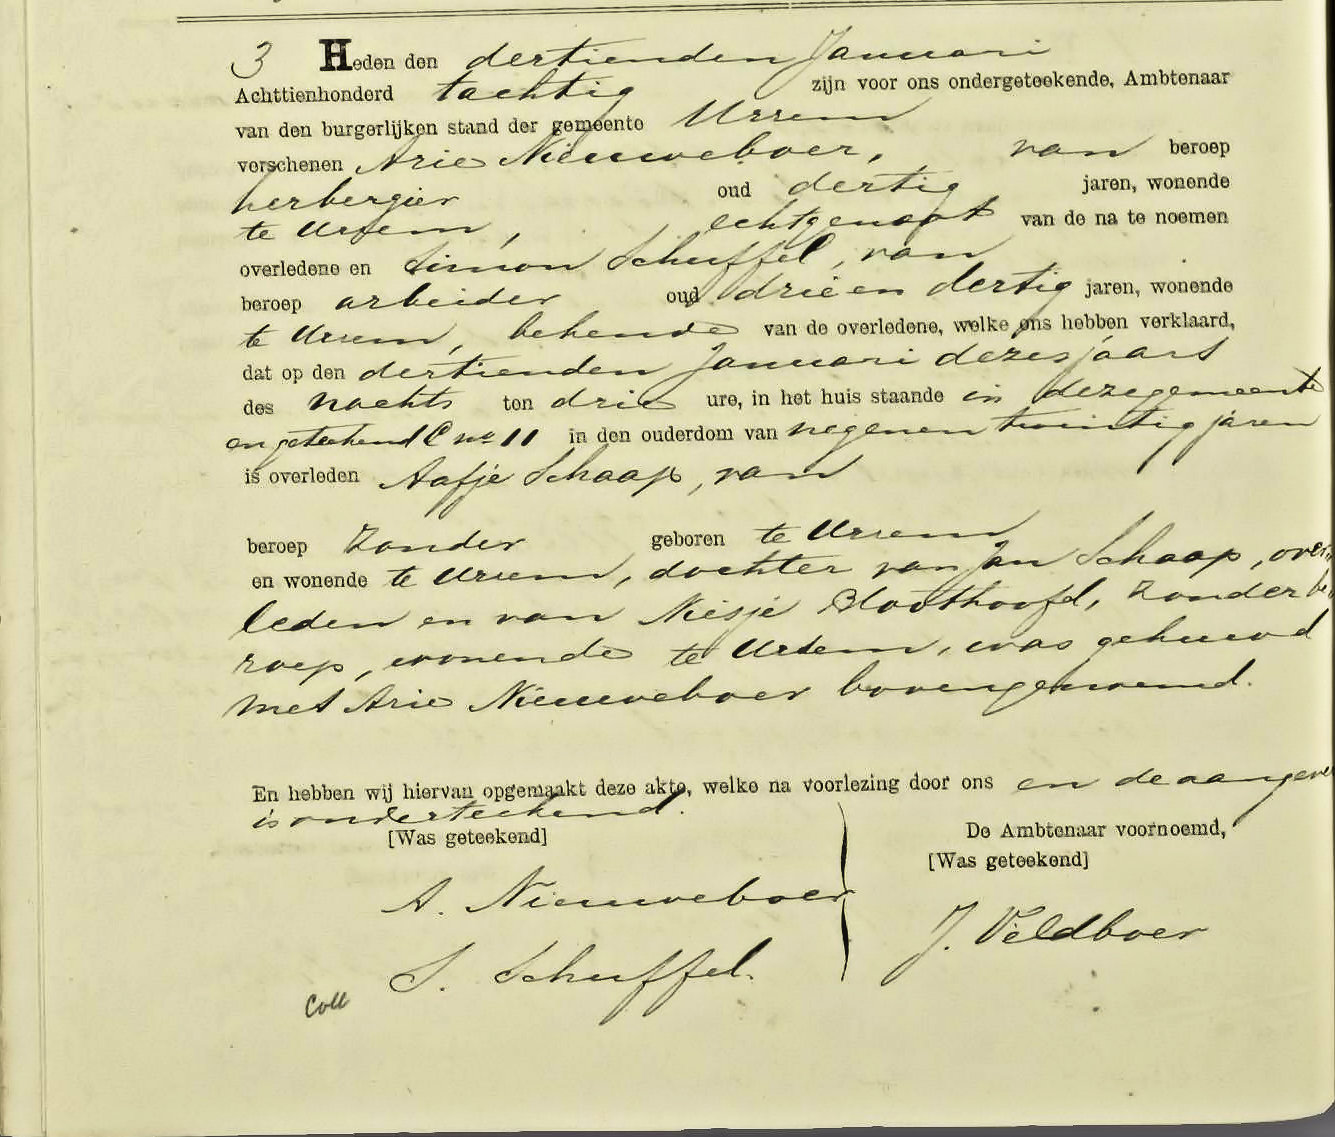 3 Heden den dertienden Januari
Achttienhonderd tachtig zijn voor ons ondergeteekende, Ambtenaar
van den burgerlijken stand der gemeente Ursem
verschenen Arie Nieuweboer, van beroep
herbergier oud dertig jaren, wonende
te Ursem, echtgenoot van de na te noemen
overledene en Simon Schuffel, van
beroep arbeider oud drieen dertig jaren, wonende
te Ursem, bekende van de overledene, welke ons hebben verklaard,
dat op den dertienden Januari dezes jaars
des nachts ten drie ure, in het huis staande in deze gemeente
en geteekend C no 11 in den ouderdom van negenen twintig jaren
is overleden Aafje Schaap, van
beroep zonder geboren te Ursem
en wonende te Ursem, dochter van Jan Schaap, over-
leden en van Niesje Bloothoofd, zonder be-
roep, wonende te Ursem, was gehuwd
met Arie Nieuweboer bovengenoemd.
En hebben wij hiervan opgemaakt deze akte, welke na voorlezing door ons en de aangevers
is onderteekend.
[Was geteekend] De Ambtenaar voornoemd,
[Was geteekend]
A. Nieuweboer
J. Veldboer
S. Schuffel.
Coll